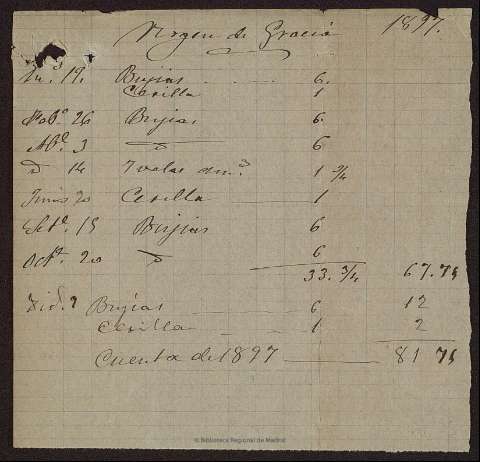 Virgen de Gracia 1897.
En.º 19. Bujias 6.
Cerilla 1
Feb.º 26 Bujias 6
Ab.l 3 D 6
D 14 7 velas 1 3/4
Junio 20 Cerilla 1
Set.e 15 Bujias 6
Oct.e 20 D 6
33. 3/4 67.75
Bujias 6 12
Cerilla 1 2
Cuenta de 1897 81 75
© Biblioteca Regional de Madrid